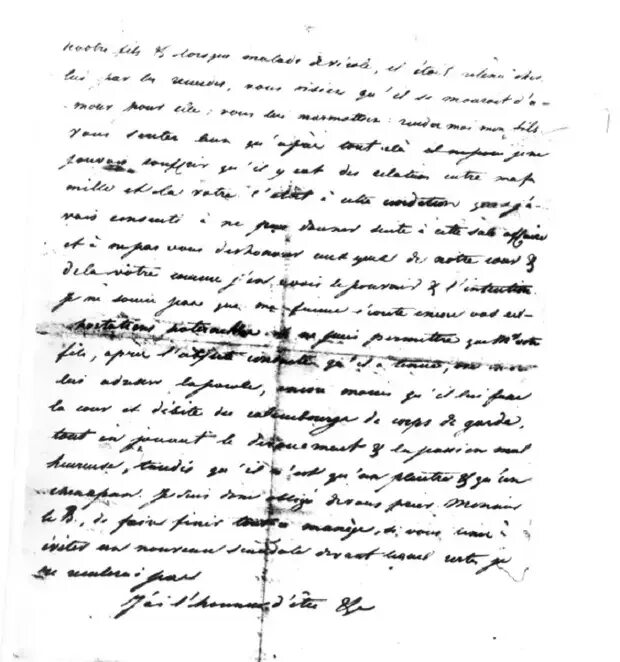 votre fils & lorsque malade de vérole, il était retenu chez
lui par les remèdes, vous disiez qu'il se mourait d'a-
mour pour elle; vous lui marmottiez: rendez moi mon fils.
Vous sentez bien qu'après tout cela je ne
pouvais souffrir qu'il y eut des relation entre ma fa-
mille et la votre. C'était à cette condition que j'a-
vais consenti à ne pas donner suite à cette sale affaire
et à ne pas vous deshonorer aux yeux de notre cour &
de la vôtre comme j'en avais le pouvoir & l'intention
Je ne me soucie pas que ma femme écoute encore vos ex-
hortations paternelles. Je ne puis permettre que Mr votre
fils, après l'abjecte conduite qu'il a tenue, ose
lui adresser la parole, encore moins qu'il lui fasse
la cour et débite des calembourgs de corps de garde,
tout en jouant le dévouement & la passion mal
heureuse, tandis qu'il n'est qu'un plâtre & qu'un
chenapan. Je suis donc obligé de vous prier, Monsieur
le B, de faire finir tout ce manège, si vous tenez à
éviter un nouveau scandale devant lequel certes je
ne reculerai pas
J'ai l'honneur d'être &c